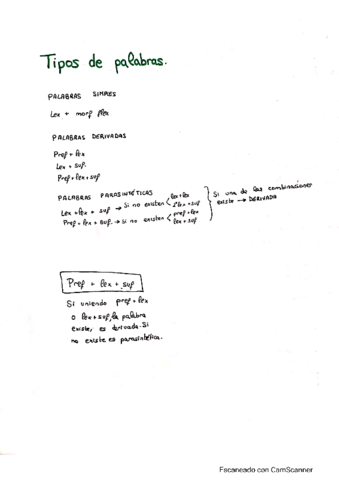 Tipos de palabras.
PALABRAS SIMPLES
Lex + morf flex
PALABRAS DERIVADAS
Pref + lex
Lex + suf.
Pref + lex + suf
PALABRAS PARASINTÉTICAS
Lex + lex + suf → Si no existen lex + lex
lex + suf
Pref + lex + suf. → si no existen pref + lex
lex + suf
Si una de las combinaciones
existe → DERIVADA
Pref + lex + suf
Si uniendo pref + lex
o lex + suf, la palabra
existe, es derivada. Si
no existe es parasintética.
Escaneado con CamScanner